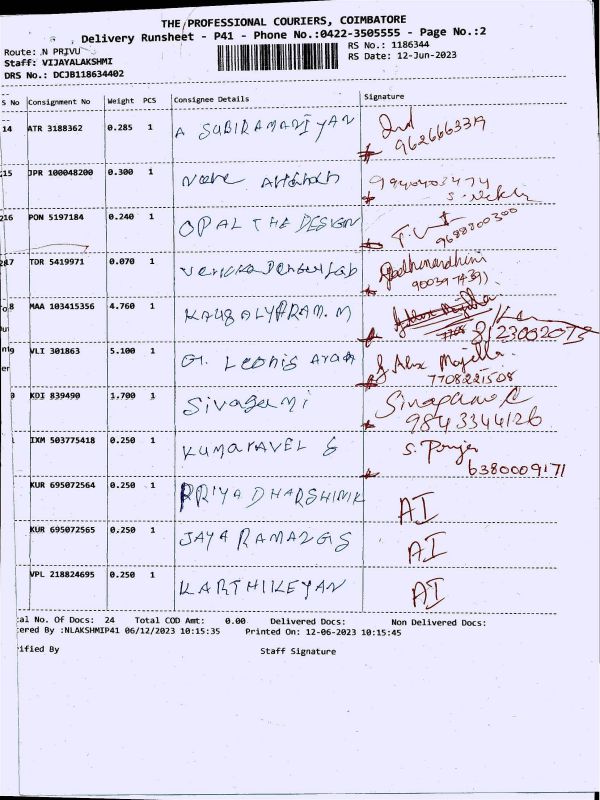 THE PROFESSIONAL COURIERS, COIMBATORE
Delivery Runsheet - P41 - Phone No.:0422-3505555 - Page No.:2
Route: .N PRIVU
RS No.: 1186344
Staff: VIJAYALAKSHMI
RS Date: 12-Jun-2023
DRS No.: DCJB118634402
S No Consignment No Weight PCS Consignee Details Signature
14 ATR 3188362 0.285 1 A SUBIRAMANIYAN
9626663319
15 JPR 100048200 0.300 1
9940403474
216 PON 5197184 0.240 1 OPAL THE DESIGN
9688800300
217 TDR 5419971 0.070 1
MAA 103415356 4.760 1 KAUSALYARAM. M
VLI 301863 5.100 1
J Alex Majella
7708221508
KDI 839490 1.700 1 Sivagami
9843344126
IXM 503775418 0.250 1 KUMARAVEL S
6380009171
KUR 695072564 0.250 1 PRIYA DHARSHINIK AI
KUR 695072565 0.250 1 AI
VPL 218824695 0.250 1 KARTHIKEYAN AI
al No. Of Docs: 24 Total COD Amt: 0.00 Delivered Docs: Non Delivered Docs:
ered By :NLAKSHMIP41 06/12/2023 10:15:35 Printed On: 12-06-2023 10:15:45
ified By Staff Signature